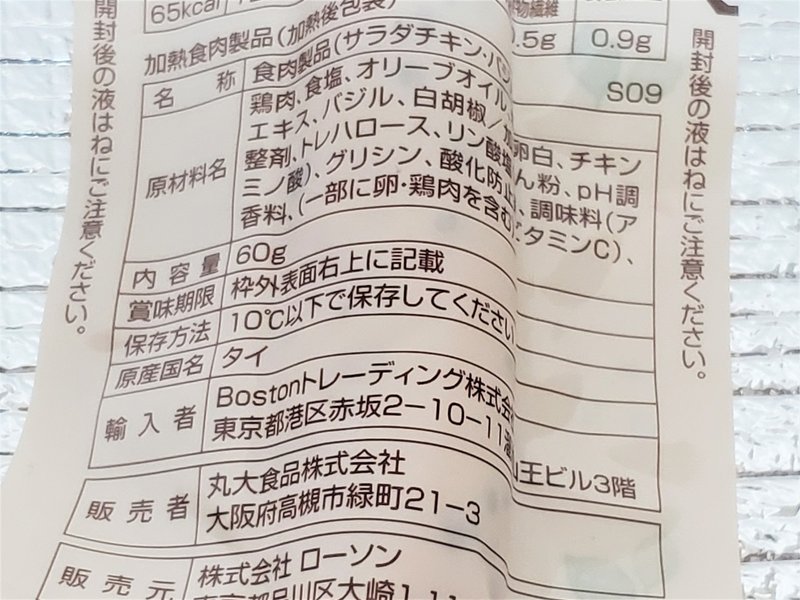 65kcal
物繊維
.5g
0.9g
加熱食肉製品(加熱後包装)
S09
名称
食肉製品(サラダチキン・バ
原材料名
鶏肉、食塩、オリーブオイル、卵白、チキン
エキス、バジル、白胡椒/ん粉、pH調
整剤、トレハロース、リン酸塩、調味料(ア
ミノ酸)、グリシン、酸化防止タミンC)、
香料、(一部に卵・鶏肉を含む
内容量
60g
賞味期限
枠外表面右上に記載
保存方法
10℃以下で保存してください
原産国名
タイ
輸入者
Bostonトレーディング株式会
東京都港区赤坂2-10-11
山王ビル3階
販売者
丸大食品株式会社
大阪府高槻市緑町21-3
販売元
株式会社 ローソン
東京都品川区大崎1
開封後の液はねにご注意ください。
開封後の液はねにご注意ください。